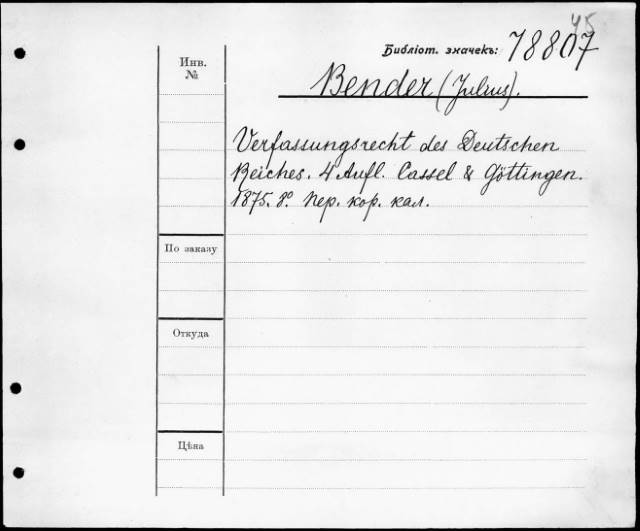 45
Библіот. значекъ: 78807
Инв.
№
Bender (Julius).
Verfassungsrecht des Deutschen
Reiches. 4 Aufl. Cassel & Göttingen.
1875. 8º. Пер. кор. кал.
По заказу
Откуда
Цѣна